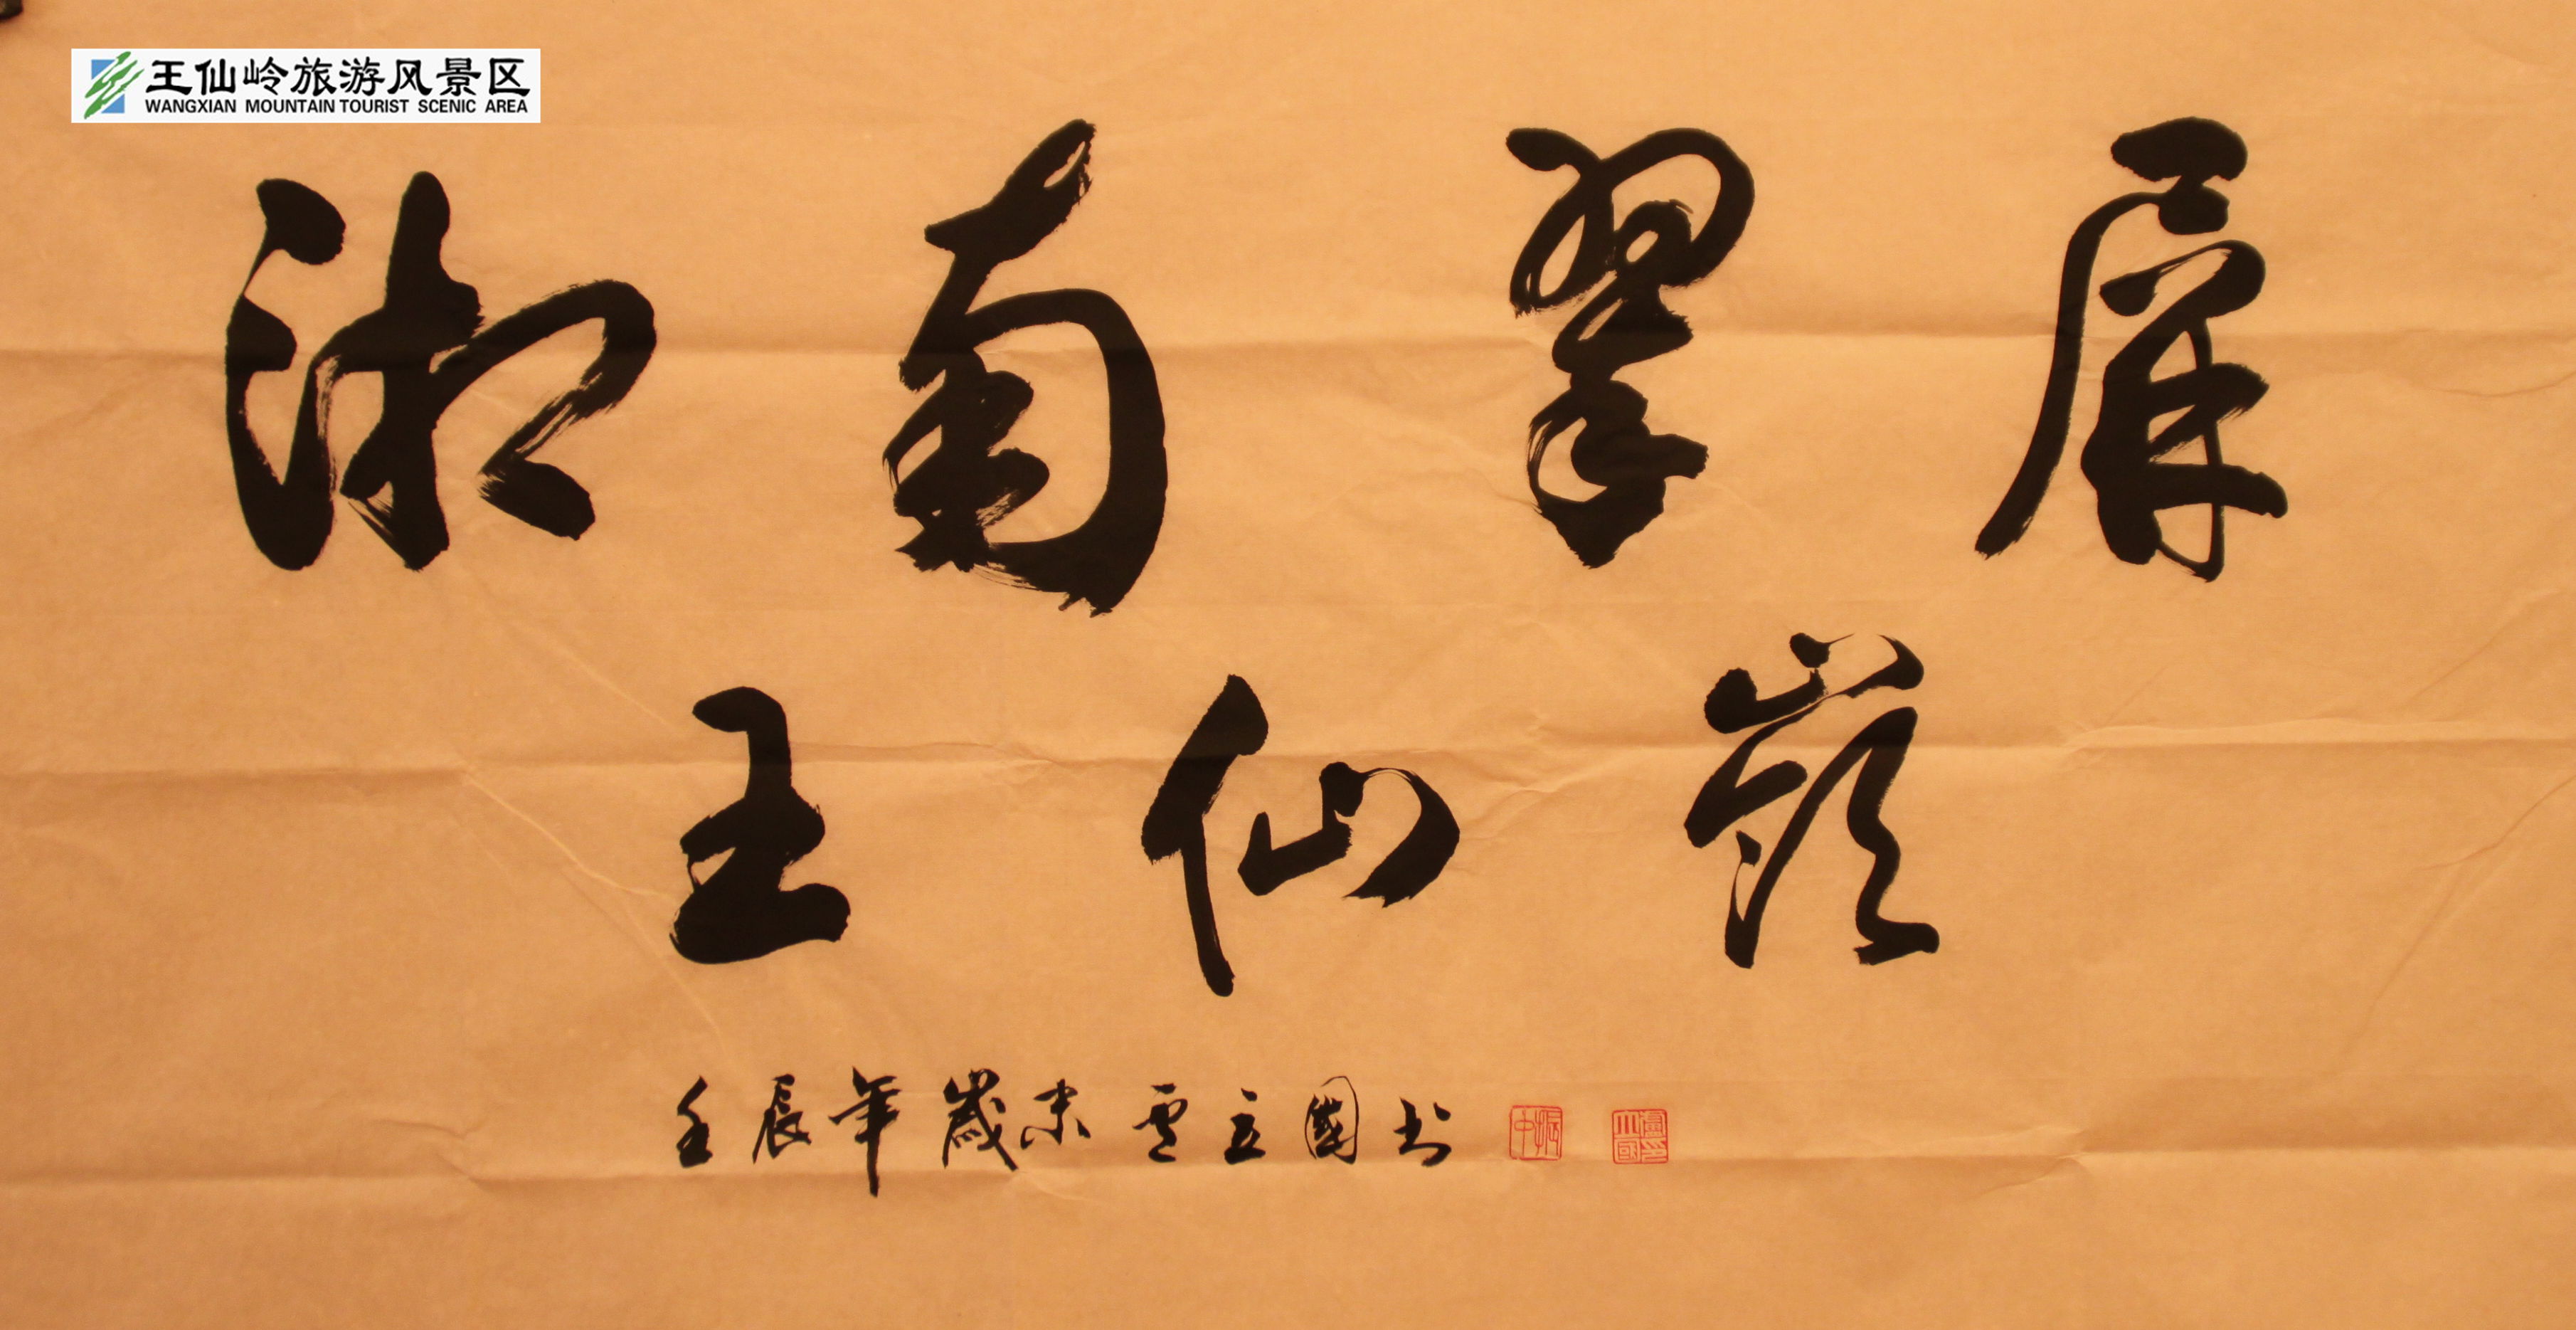 王仙岭旅游风景区
WANGXIAN MOUNTAIN TOURIST SCENIC AREA
湘南翠屏
王仙嶺
壬辰年歲末盧立國书
振中
盧立國印